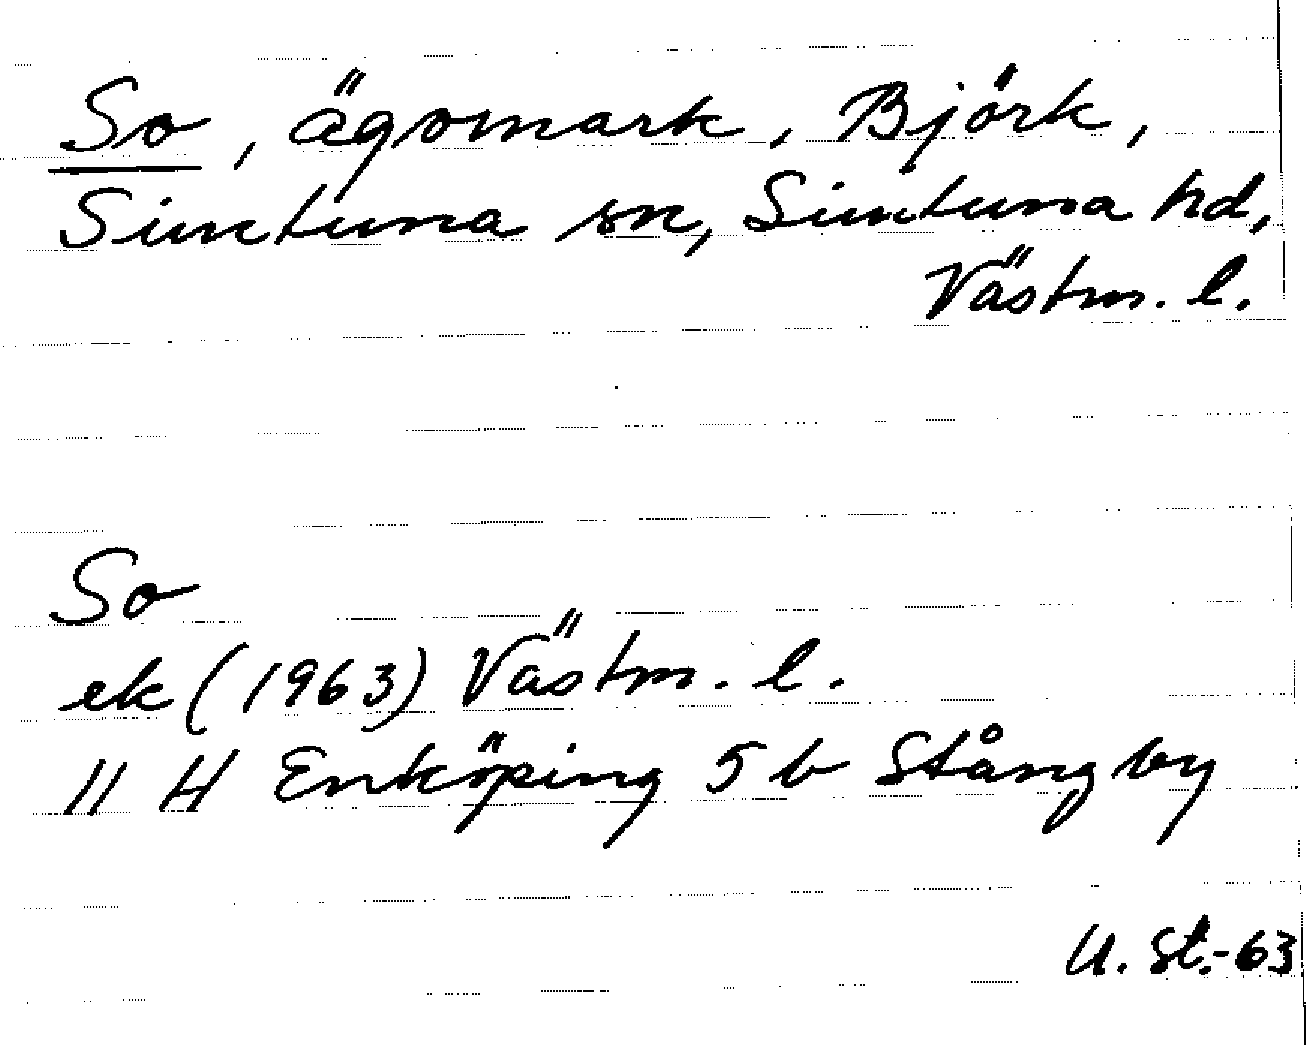 So, ägomark, Björk,
Simtuna sn, Simtuna hd,
Västm. l.
So
ek (1963) Västm. l.
11 H Enköping 5 b Stångby
U. St.-63